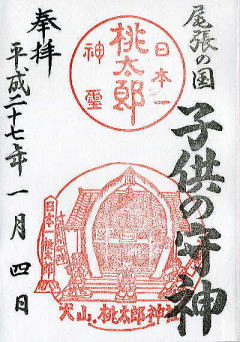 尾張の国
子供の守神
日本一
桃太郎
神璽
犬山・桃太郎神社
日本一桃太郎
奉拝
平成二十七年一月四日